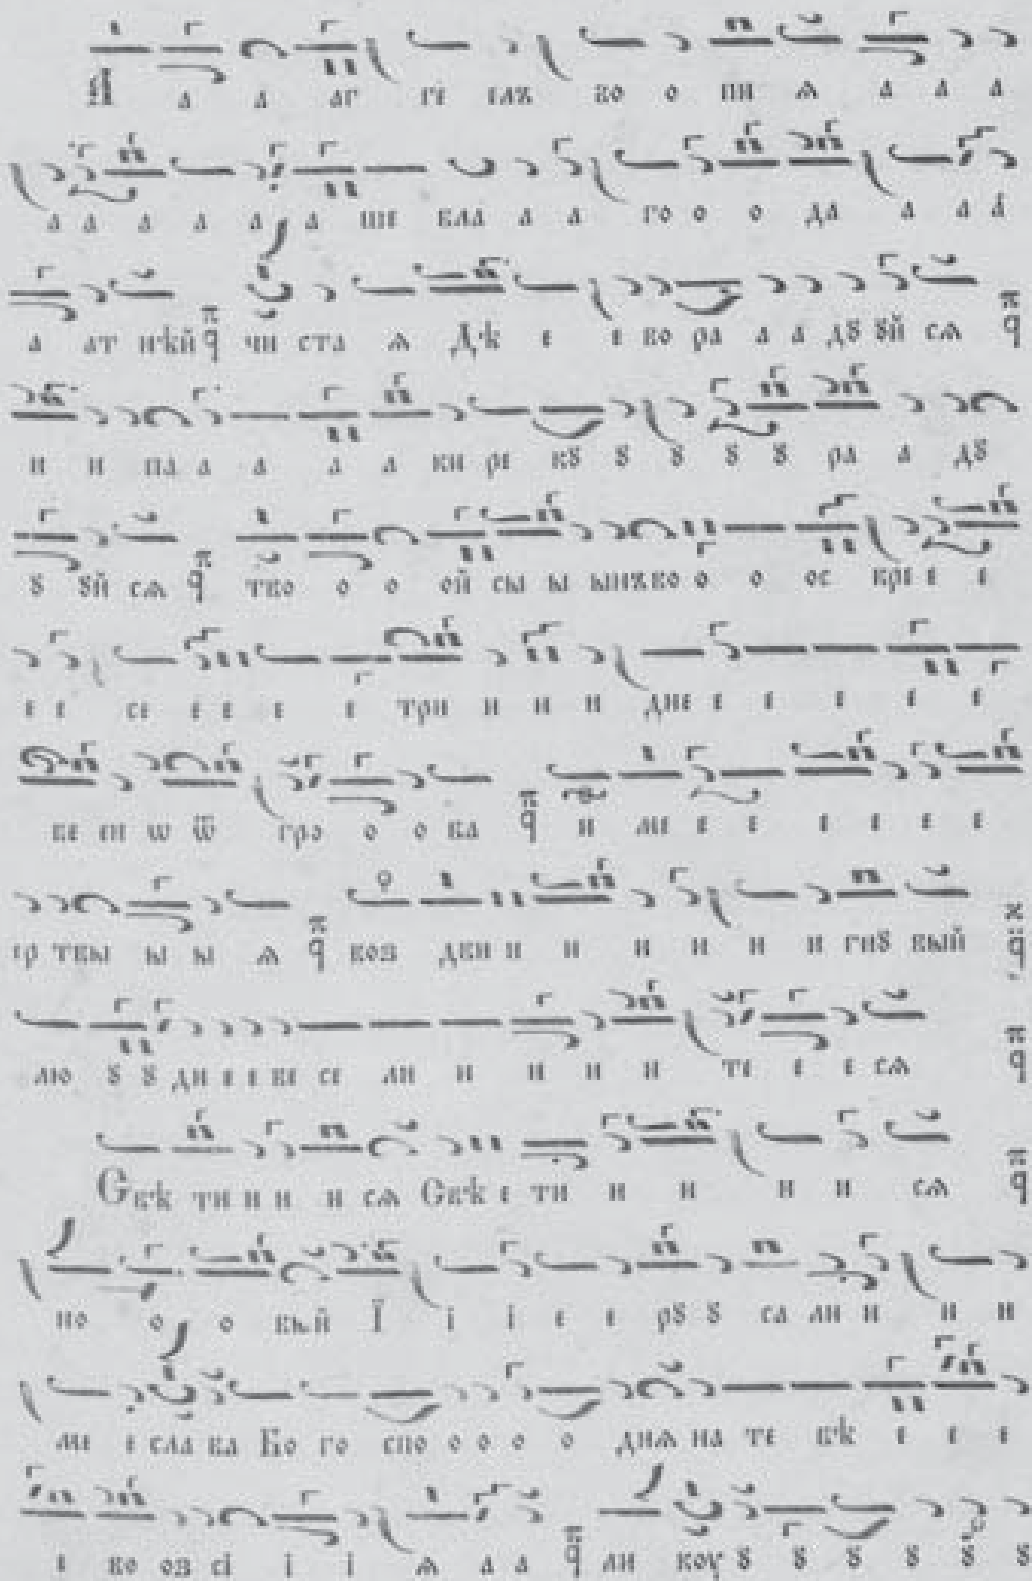 А а а аг ге елъ во о пи ѧ а а а
а а а а а а ше бла а а го о о да а а а
а ат нѣй чи ста ѧ Дѣ е е во ра а а дꙋ ꙋй сѧ
и и па а а а а ки ре кꙋ ꙋ ꙋ ꙋ ꙋ ра а дꙋ
ꙋ ꙋй сѧ тво о о ой сы ы ынъ во о о ос кре е е
е е се е е е е три и и и дне е е е е е
ве ен ѡ ѿ гро о о ба и ме е е е е е е
ер твы ы ы ѧ воз дви и и и и и и гнꙋ вый
лю ꙋ ꙋ ди е е ве се ли и и и и те е е сѧ
Свѣ ти и и и сѧ Свѣ е ти и и и и сѧ
но о о вый Ї і і е е рꙋ ꙋ са ли и и и
ме е сла ва Бо го спо о о о о днѧ на те бѣ е е е
е во оз сі і і ѧ а а ли коу ꙋ ꙋ ꙋ ꙋ ꙋ ꙋ